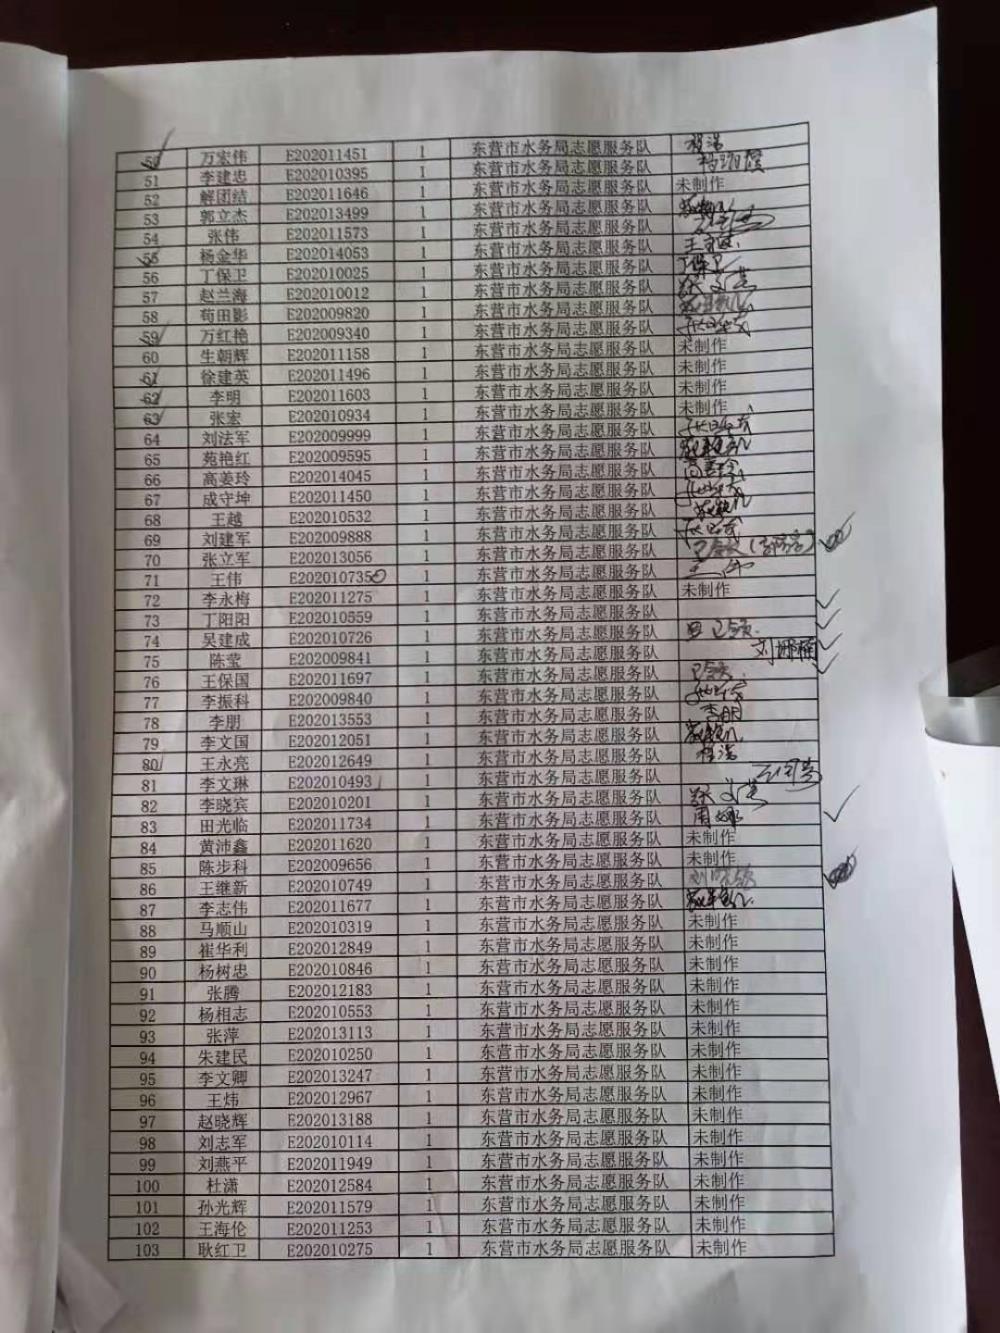 50 万宏伟 E202011451 1 东营市水务局志愿服务队 程浩
51 李建忠 E202010395 1 东营市水务局志愿服务队
52 解团结 E202011646 1 东营市水务局志愿服务队 未制作
53 郭立杰 E202013499 1 东营市水务局志愿服务队
54 张伟 E202011573 1 东营市水务局志愿服务队
55 杨金华 E202014053 1 东营市水务局志愿服务队
56 丁保卫 E202010025 1 东营市水务局志愿服务队 丁保卫
57 赵兰海 E202010012 1 东营市水务局志愿服务队
58 荀田影 E202009820 1 东营市水务局志愿服务队
59 万红艳 E202009340 1 东营市水务局志愿服务队
60 生朝辉 E202011158 1 东营市水务局志愿服务队 未制作
61 徐建英 E202011496 1 东营市水务局志愿服务队 未制作
62 李明 E202011603 1 东营市水务局志愿服务队 未制作
63 张宏 E202010934 1 东营市水务局志愿服务队 未制作
64 刘法军 E202009999 1 东营市水务局志愿服务队
65 苑艳红 E202009595 1 东营市水务局志愿服务队
66 高姜玲 E202014045 1 东营市水务局志愿服务队 高姜玲
67 成守坤 E202011450 1 东营市水务局志愿服务队
68 王越 E202010532 1 东营市水务局志愿服务队
69 刘建军 E202009888 1 东营市水务局志愿服务队
70 张立军 E202013056 1 东营市水务局志愿服务队 已领
71 王伟 E202010735 1 东营市水务局志愿服务队 王伟
72 李永梅 E202011275 1 东营市水务局志愿服务队 未制作
73 丁阳阳 E202010559 1 东营市水务局志愿服务队
74 吴建成 E202010726 1 东营市水务局志愿服务队 已领
75 陈莹 E202009841 1 东营市水务局志愿服务队 刘娜楠
76 王保国 E202011697 1 东营市水务局志愿服务队 已领
77 李振科 E202009840 1 东营市水务局志愿服务队
78 李朋 E202013553 1 东营市水务局志愿服务队 李朋
79 李文国 E202012051 1 东营市水务局志愿服务队
80 王永亮 E202012649 1 东营市水务局志愿服务队 程浩
81 李文琳 E202010493 1 东营市水务局志愿服务队
82 李晓宾 E202010201 1 东营市水务局志愿服务队
83 田光临 E202011734 1 东营市水务局志愿服务队
84 黄沛鑫 E202011620 1 东营市水务局志愿服务队 未制作
85 陈步科 E202009656 1 东营市水务局志愿服务队 未制作
86 王继新 E202010749 1 东营市水务局志愿服务队
87 李志伟 E202011677 1 东营市水务局志愿服务队
88 马顺山 E202010319 1 东营市水务局志愿服务队 未制作
89 崔华利 E202012849 1 东营市水务局志愿服务队 未制作
90 杨树忠 E202010846 1 东营市水务局志愿服务队 未制作
91 张腾 E202012183 1 东营市水务局志愿服务队 未制作
92 杨相志 E202010553 1 东营市水务局志愿服务队 未制作
93 张萍 E202013113 1 东营市水务局志愿服务队 未制作
94 朱建民 E202010250 1 东营市水务局志愿服务队 未制作
95 李文卿 E202013247 1 东营市水务局志愿服务队 未制作
96 王炜 E202012967 1 东营市水务局志愿服务队 未制作
97 赵晓辉 E202013188 1 东营市水务局志愿服务队 未制作
98 刘志军 E202010114 1 东营市水务局志愿服务队 未制作
99 刘燕平 E202011949 1 东营市水务局志愿服务队 未制作
100 杜潇 E202012584 1 东营市水务局志愿服务队 未制作
101 孙光辉 E202011579 1 东营市水务局志愿服务队 未制作
102 王海伦 E202011253 1 东营市水务局志愿服务队 未制作
103 耿红卫 E202010275 1 东营市水务局志愿服务队 未制作